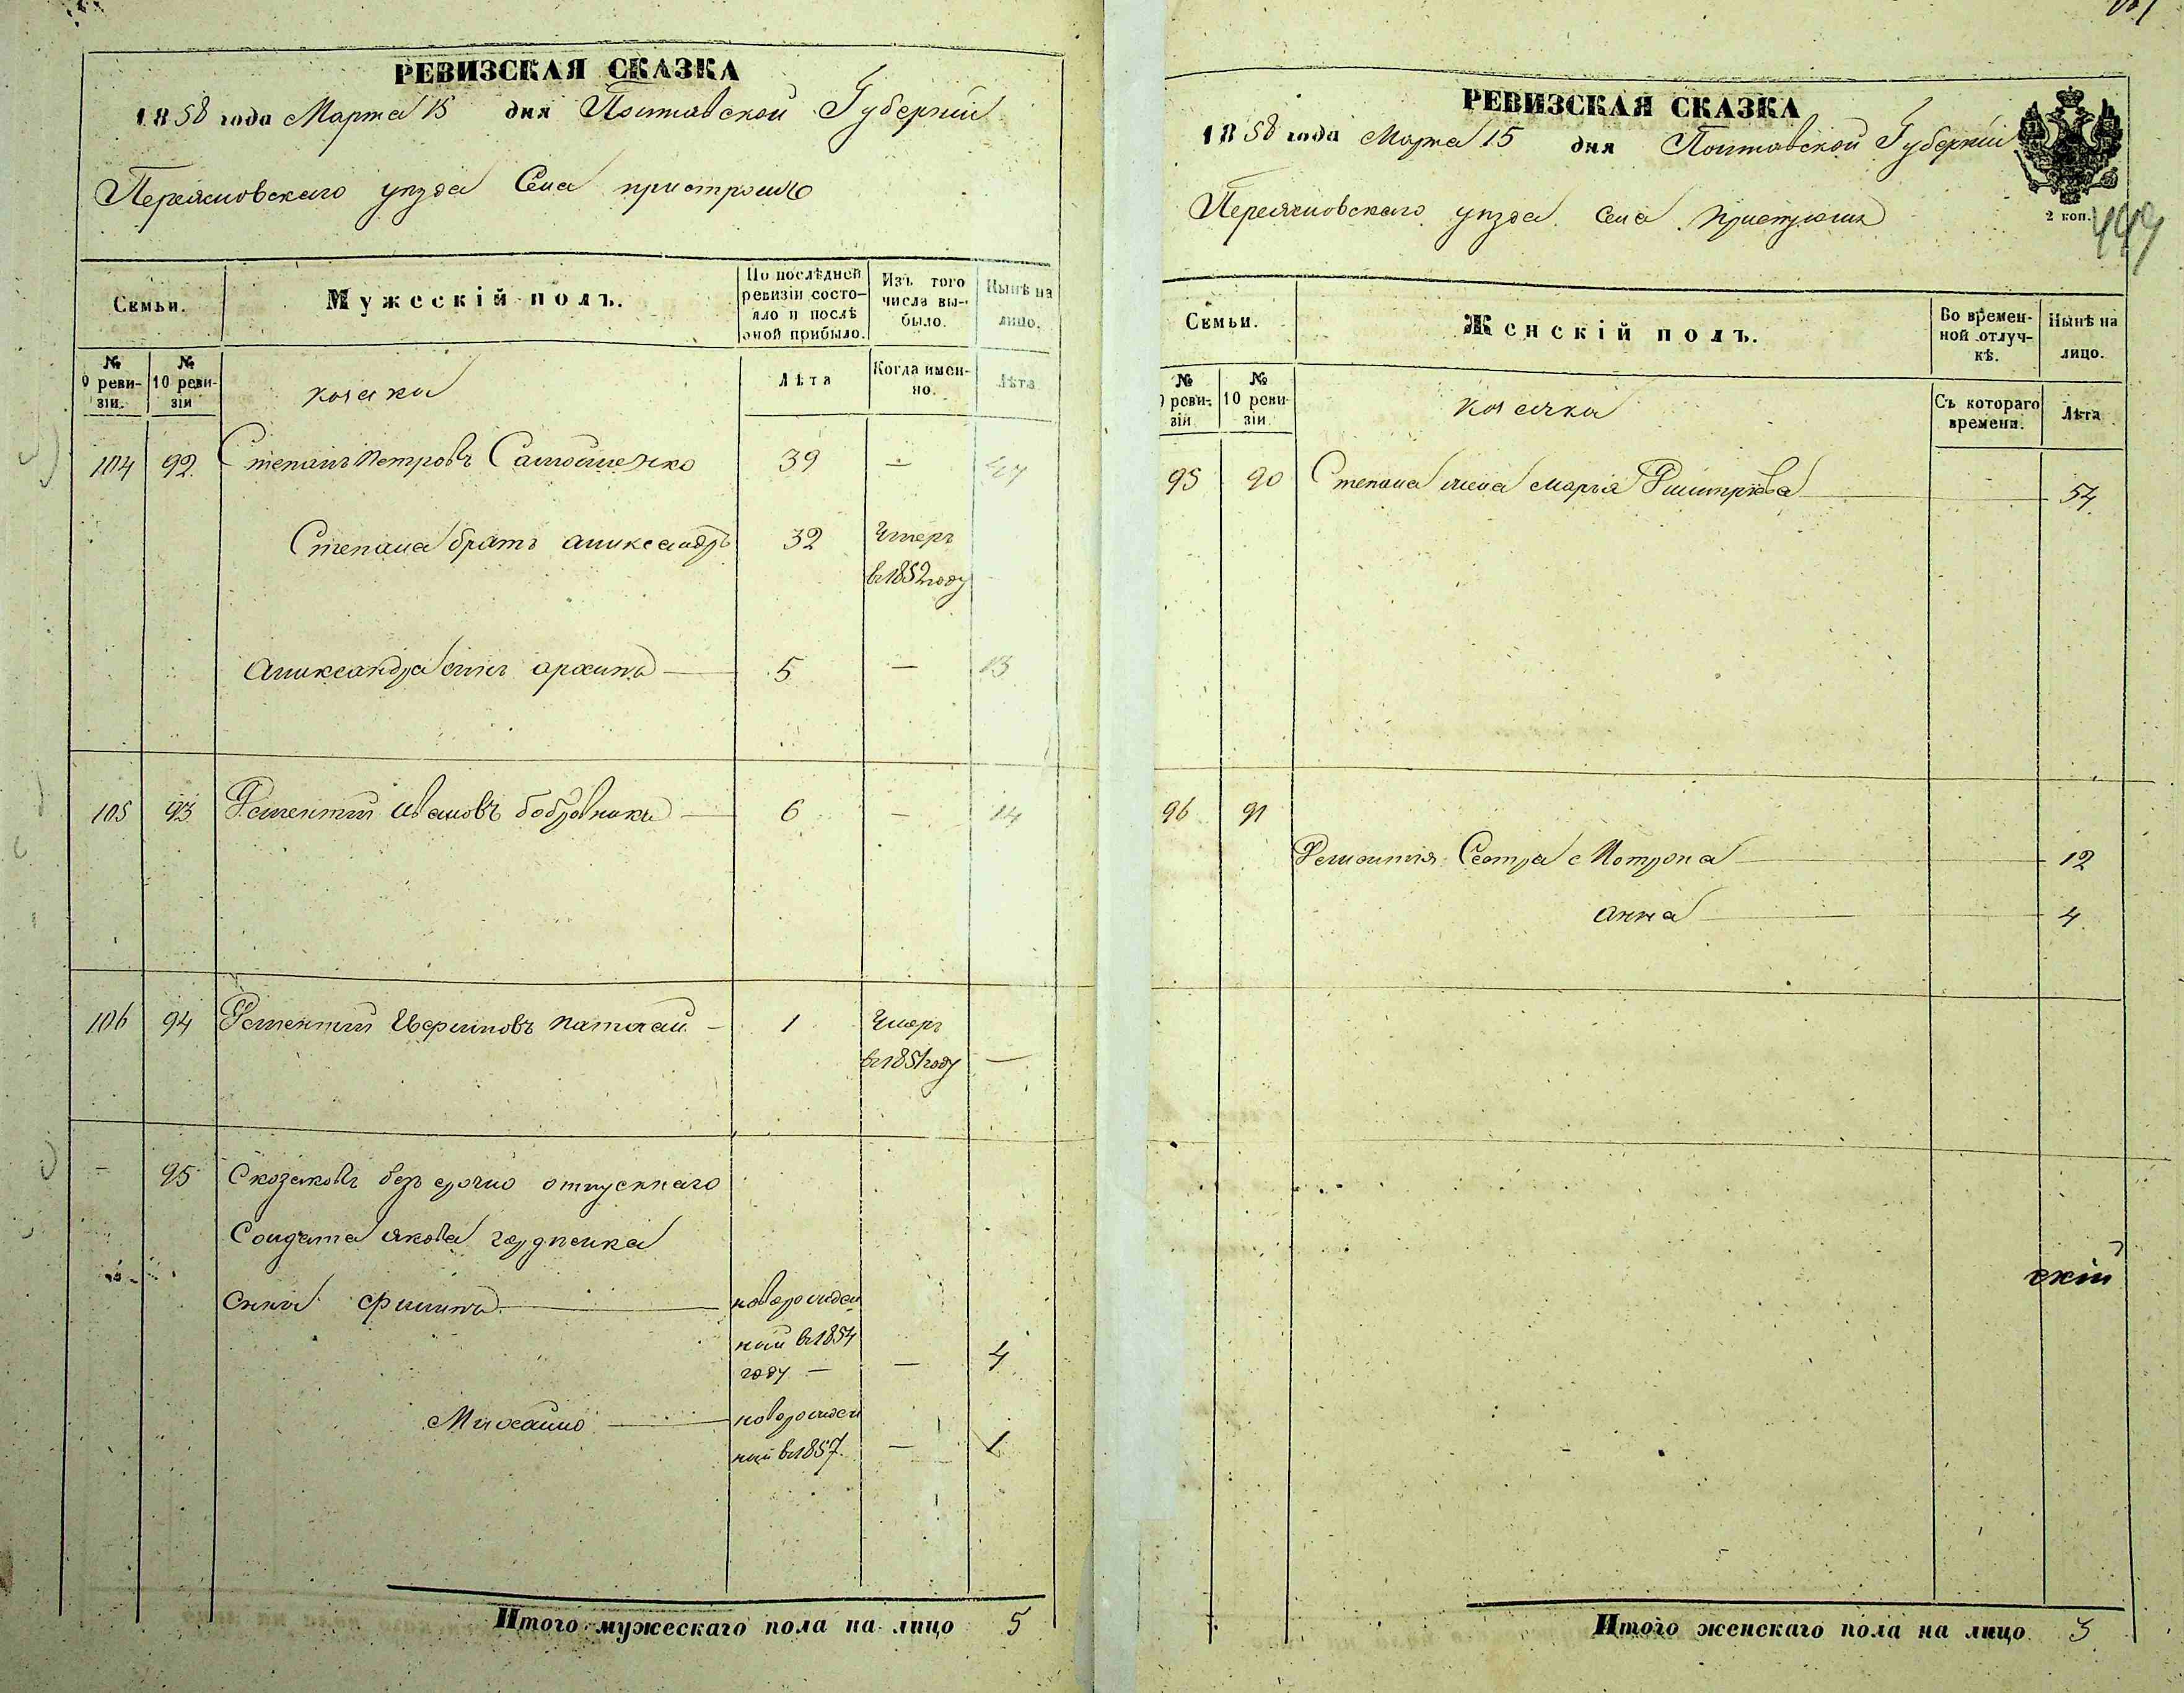 РЕВИЗСКАЯ СКАЗКА
1858 года Марта 15 дня Полтавской Губерніи
Переяславскаго уѣзда Села пристромъ
Семьи.
Мужескій полъ.
По послѣдней ревизіи состояло и послѣ оной прибыло.
Изъ того числа выбыло.
Нынѣ на лицо.
№ 9 ревизіи.
№ 10 ревизіи
козаки
Лѣта
Когда именно.
Лѣта
104 92 Степанъ Петровъ Самойленко 39 —
Степана братъ Александръ 32 Умеръ
в 1852 году
Александра сынъ архипъ 5 — 13
105 93 Терентій Ивановъ бобровникъ 6 — 14
106 94 Терентій 1 Умеръ
в 1851 году —
— 95 Скозаковъ безсрочно отпускнаго
Солдата якова
сыны филипъ новорожден
ный в 1854
году — — 4
Михаило новорожден
ный в 1857 — 1
Итого мужескаго пола на лицо 5
РЕВИЗСКАЯ СКАЗКА
1858 года Марта 15 дня Полтавской Губерніи
Переяславскаго уѣзда Села
2 коп.
449
Семьи.
Женскій полъ.
Во временной отлучкѣ.
Нынѣ на лицо.
№ 9 ревизіи
№ 10 ревизіи.
козачки
Съ котораго времени.
Лѣта
95 90 Степана жена Марія Дмитріева 54
96 91
Терентія Сестра Мотрона 12
Анна 4
скій
Итого женскаго пола на лицо 3